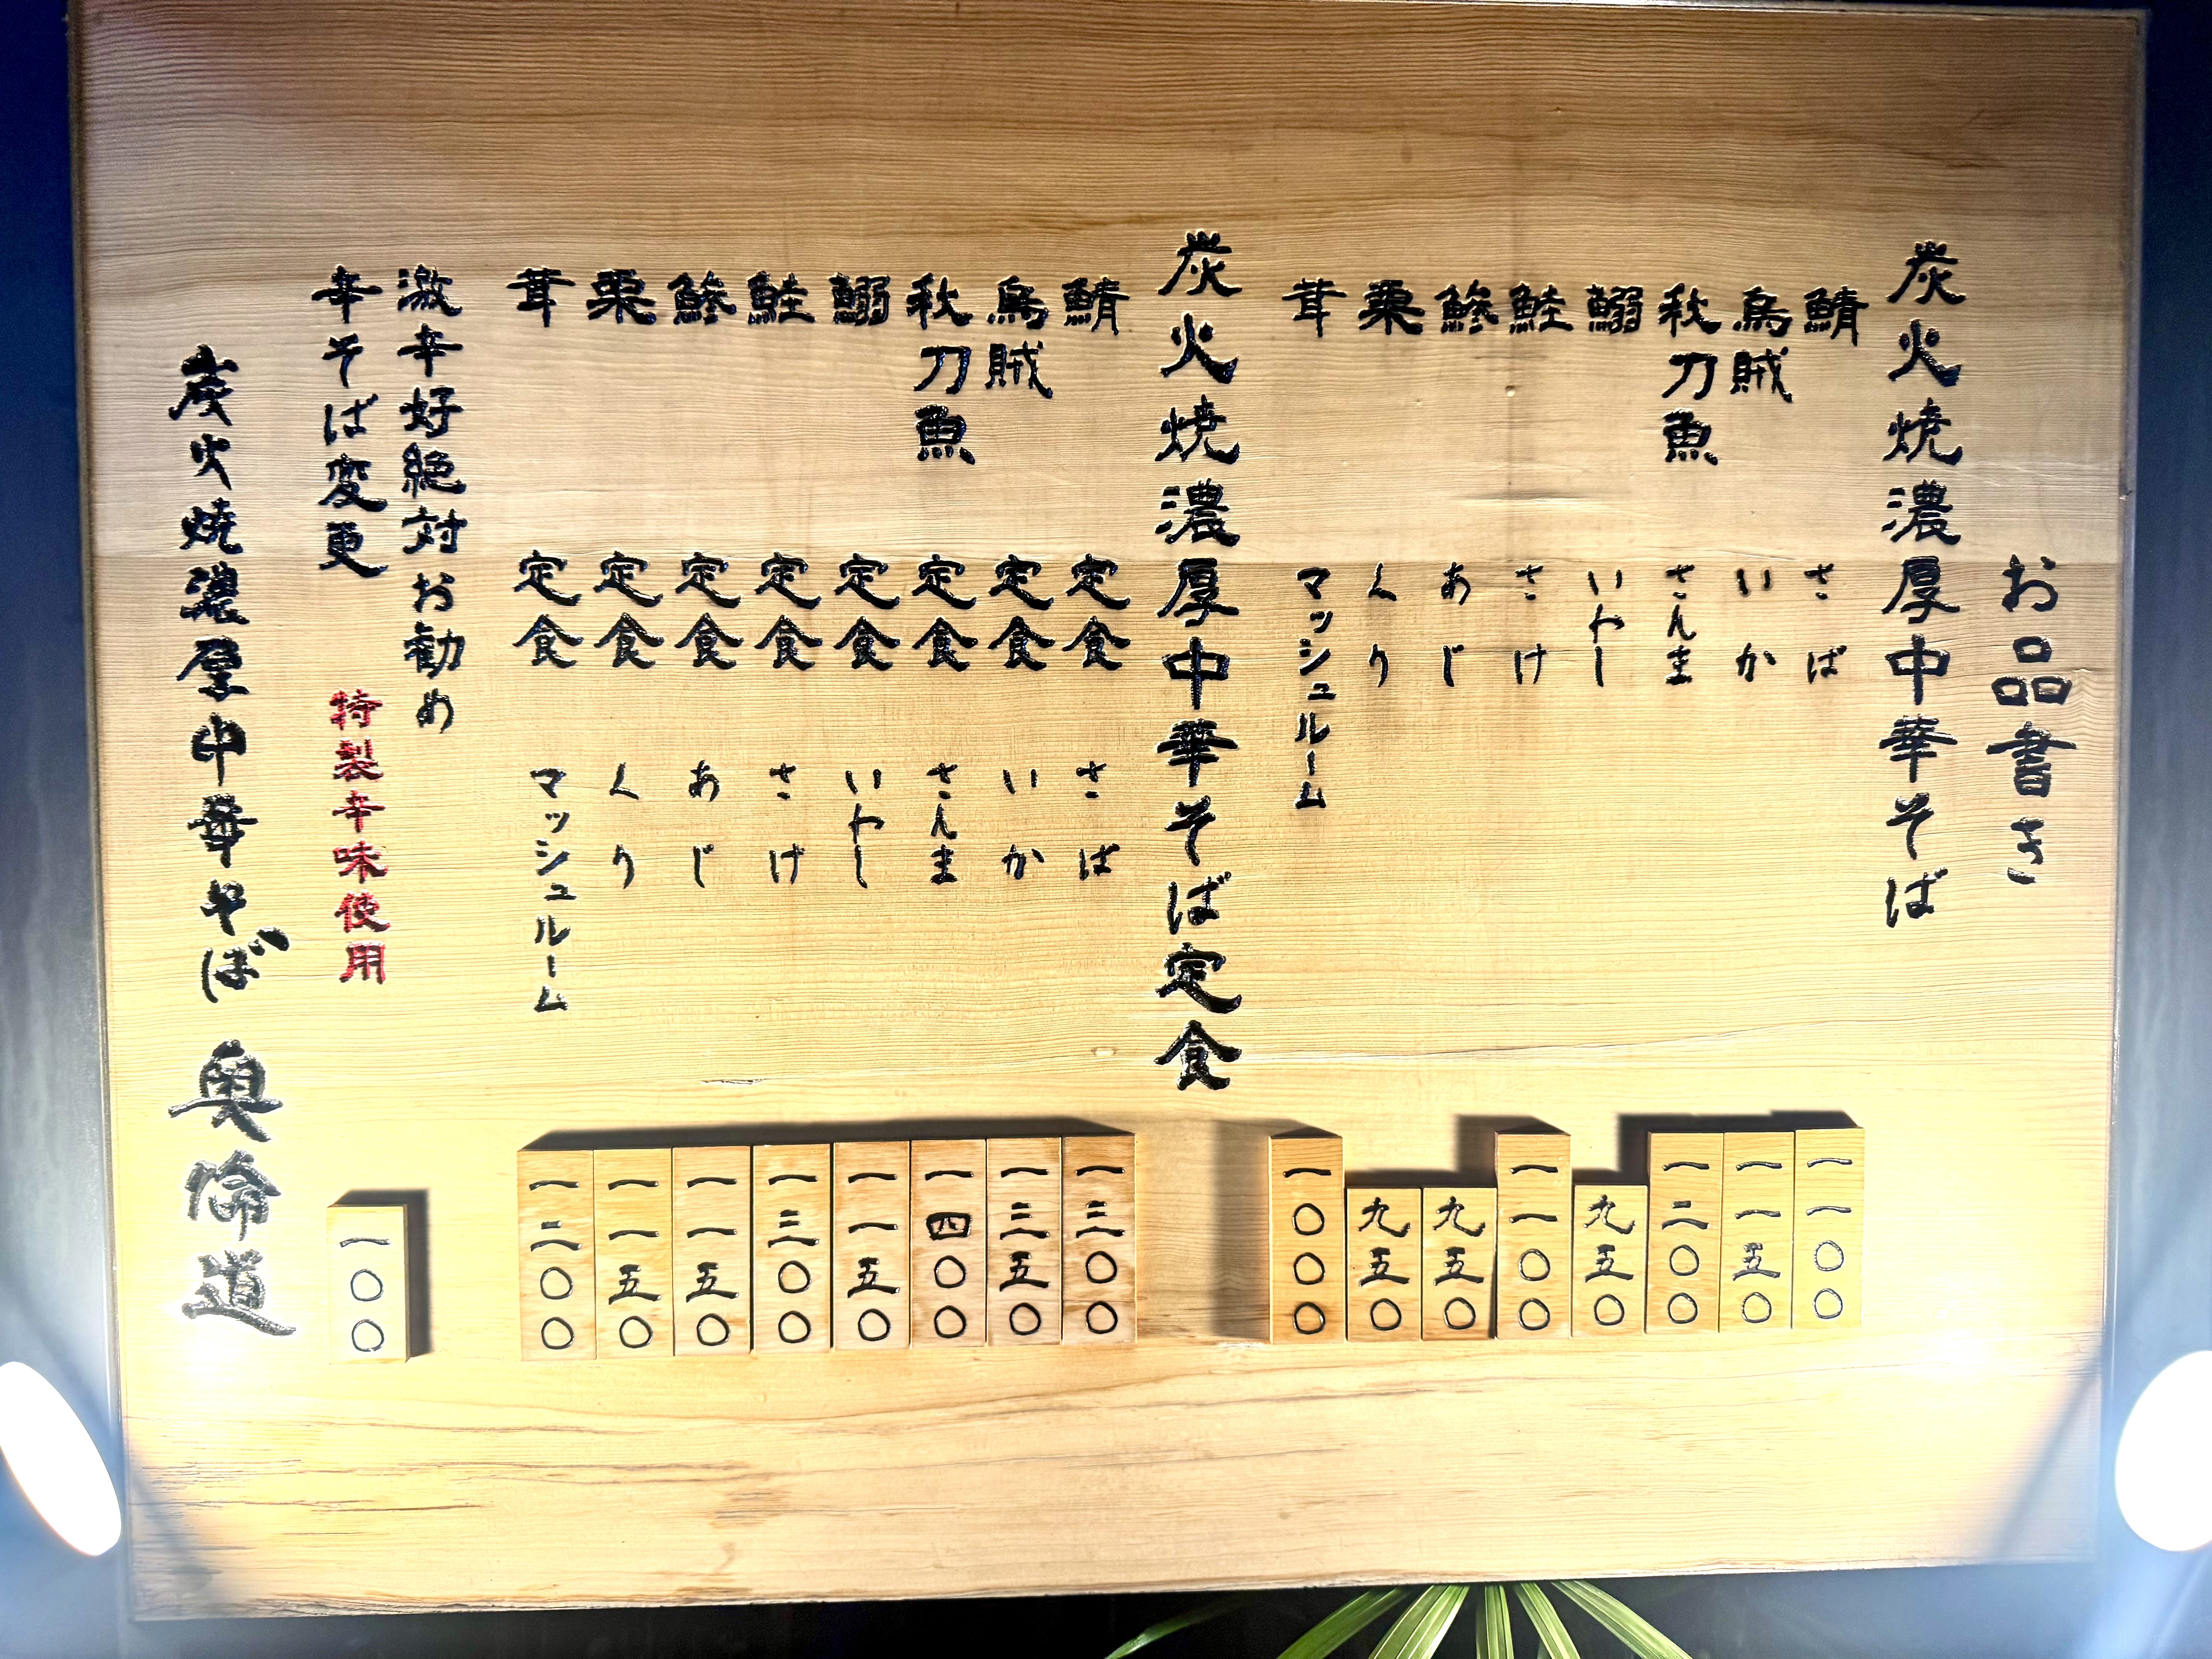 お品書き
炭火焼濃厚中華そば
鯖 さば 一一〇〇
烏賊 いか 一一五〇
秋刀魚 さんま 一二〇〇
鰯 いわし 九五〇
鮭 さけ 一一〇〇
鯵 あじ 九五〇
栗 くり 九五〇
茸 マッシュルーム 一〇〇〇
炭火焼濃厚中華そば定食
鯖定食 さば 一三〇〇
烏賊定食 いか 一三五〇
秋刀魚定食 さんま 一四〇〇
鰯定食 いわし 一一五〇
鮭定食 さけ 一三〇〇
鯵定食 あじ 一一五〇
栗定食 くり 一一五〇
茸定食 マッシュルーム 一二〇〇
激辛好絶対お勧め
辛そば変更 特製辛味使用 一〇〇
炭火焼濃厚中華そば 奥倫道